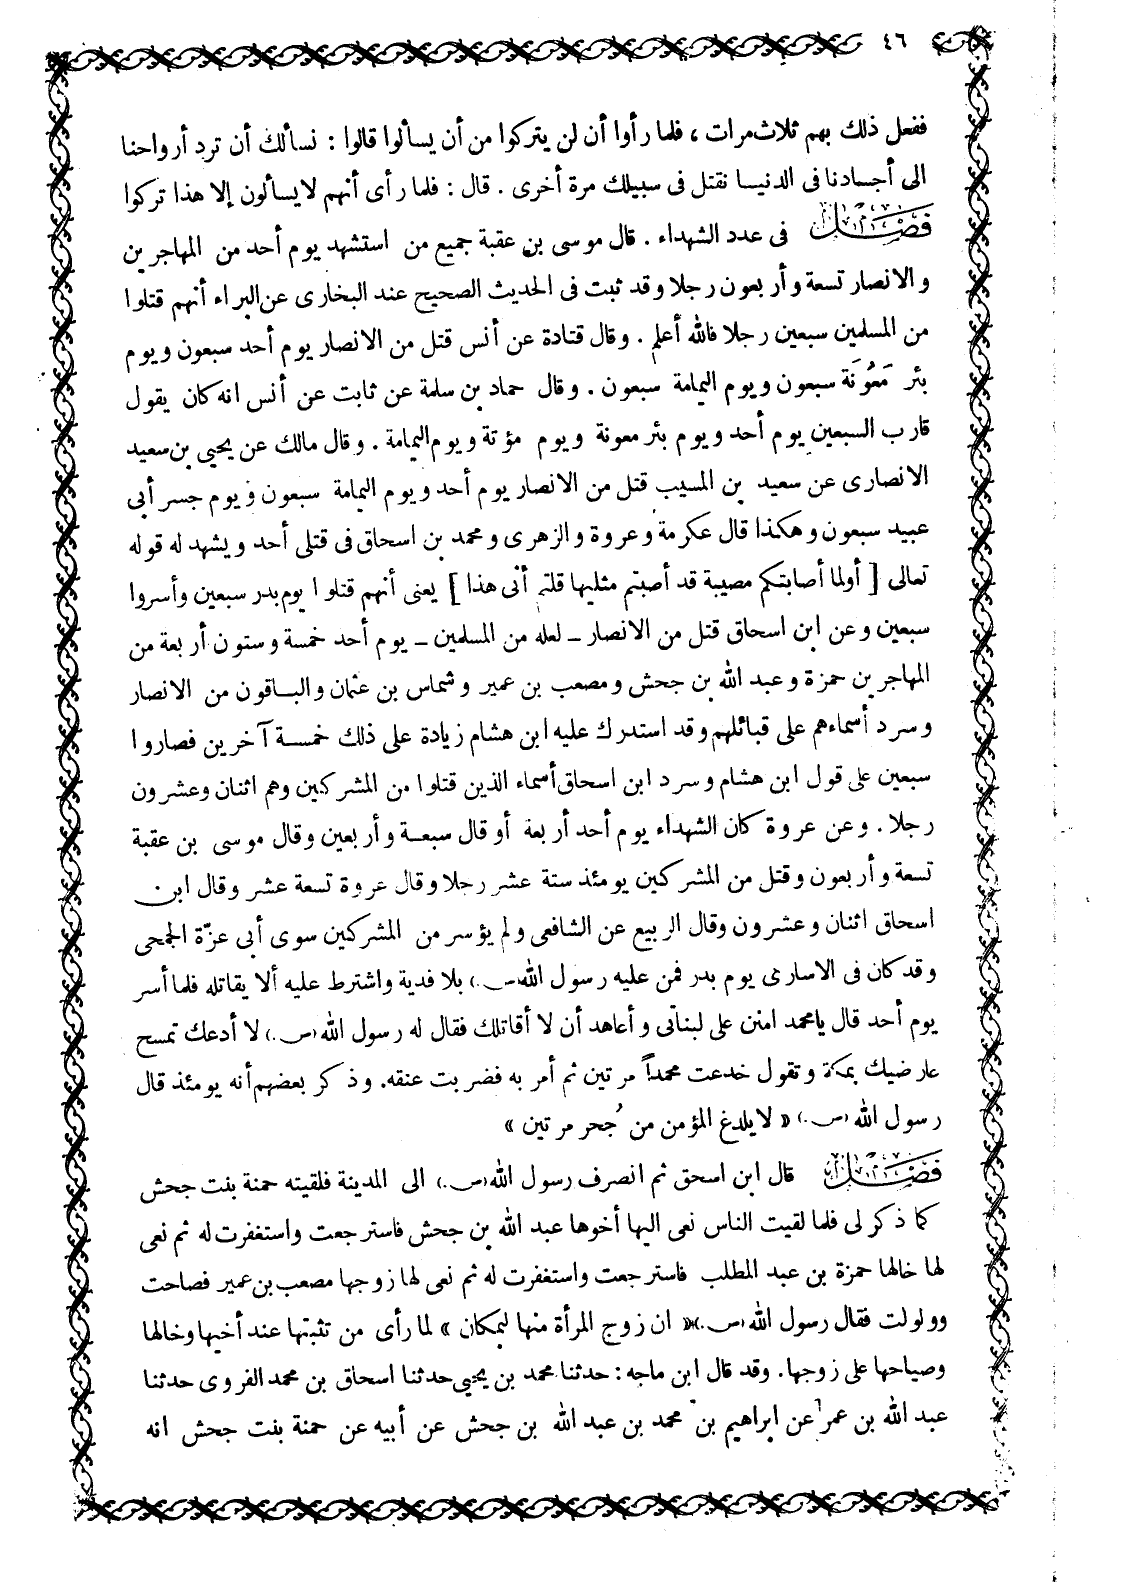 ٤٦
ففعل ذلك بهم ثلاث مرات ، فلما رأوا أن لن يتركوا من أن يسألوا قالوا : نسألك أن ترد أرواحنا
الى أجسادنا فى الدنيا نقتل فى سبيلك مرة أخرى . قال : فلما رأى أنهم لا يسألون إلا هذا تركوا
فصل فى عدد الشهداء . قال موسى بن عقبة جميع من استشهد يوم أحد من المهاجرين
والانصار تسعة وأربعون رجلا وقد ثبت فى الحديث الصحيح عند البخارى عن البراء أنهم قتلوا
من المسلمين سبعين رجلا فالله أعلم . وقال قتادة عن أنس قتل من الانصار يوم أحد سبعون ويوم
بئر مَعُونَة سبعون ويوم اليمامة سبعون . وقال حماد بن سلمة عن ثابت عن أنس انه كان يقول
قارب السبعين يوم أحد ويوم بئر معونة ويوم مؤتة ويوم اليمامة . وقال مالك عن يحيى بن سعيد
الانصارى عن سعيد بن المسيب قتل من الانصار يوم أحد ويوم اليمامة سبعون ويوم جسر أبى
عبيد سبعون وهكذا قال عكرمة وعروة والزهرى ومحمد بن اسحاق فى قتلى أحد ويشهد له قوله
تعالى [ أولما أصابتكم مصيبة قد أصبتم مثليها قلتم أنى هذا ] يعنى أنهم قتلوا يوم بدر سبعين وأسروا
سبعين وعن ابن اسحاق قتل من الانصار ــ لعله من المسلمين ــ يوم أحد خمسة وستون أربعة من
المهاجرين حمزة وعبد الله بن جحش ومصعب بن عمير وشماس بن عثمان والباقون من الانصار
وسرد أسماءهم على قبائلهم وقد استدرك عليه ابن هشام زيادة على ذلك خمسة آخرين فصاروا
سبعين على قول ابن هشام وسرد ابن اسحاق أسماء الذين قتلوا من المشركين وهم اثنان وعشرون
رجلا . وعن عروة كان الشهداء يوم أحد أربعة أو قال سبعة وأربعين وقال موسى بن عقبة
تسعة وأربعون وقتل من المشركين يومئذ ستة عشر رجلا وقال عروة تسعة عشر وقال ابن
اسحاق اثنان وعشرون وقال الربيع عن الشافعى ولم يؤسر من المشركين سوى أبى عزّة الجمحى
وقد كان فى الاسارى يوم بدر فمن عليه رسول الله (ص.) بلا فدية واشترط عليه ألا يقاتله فلما أسر
يوم أحد قال يا محمد امنن على لبناتى وأعاهد أن لا أقاتلك فقال له رسول الله (ص.) لا أدعك تمسح
عارضيك بمكة وتقول خدعت محمداً مرتين ثم أمر به فضربت عنقه. وذكر بعضهم أنه يومئذ قال
رسول الله (ص.) « لا يلدغ المؤمن من جُحر مرتين »
فصل قال ابن اسحق ثم انصرف رسول الله (ص.) الى المدينة فلقيته حمنة بنت جحش
كما ذكر لى فلما لقيت الناس نعى اليها أخوها عبد الله بن جحش فاسترجعت واستغفرت له ثم نعى
لها خالها حمزة بن عبد المطلب فاسترجعت واستغفرت له ثم نعى لها زوجها مصعب بن عمير فصاحت
وولولت فقال رسول الله (ص.) « ان زوج المرأة منها لبمكان » لما رأى من تثبتها عند أخيها وخالها
وصياحها على زوجها. وقد قال ابن ماجه : حدثنا محمد بن يحيى حدثنا اسحاق بن محمد الفروى حدثنا
عبد الله بن عمر عن ابراهيم بن محمد بن عبد الله بن جحش عن أبيه عن حمنة بنت جحش انه